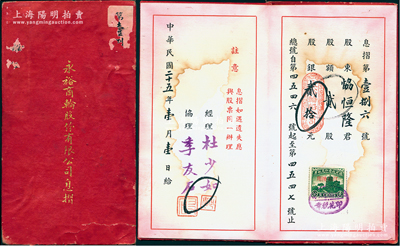 上海陽明拍賣
www.yangmingauction.com
永裕商輪股份有限公司息摺
息摺第壹捌六號
股東協恒隆君
股額貳股
股銀貳拾元
總號自第四五四六號起至第四五四七號止
注意
息摺如遇遺失應
與股票同一辦理
經理 杜少如
協理 李友
中華民國二十五年壹月壹日給